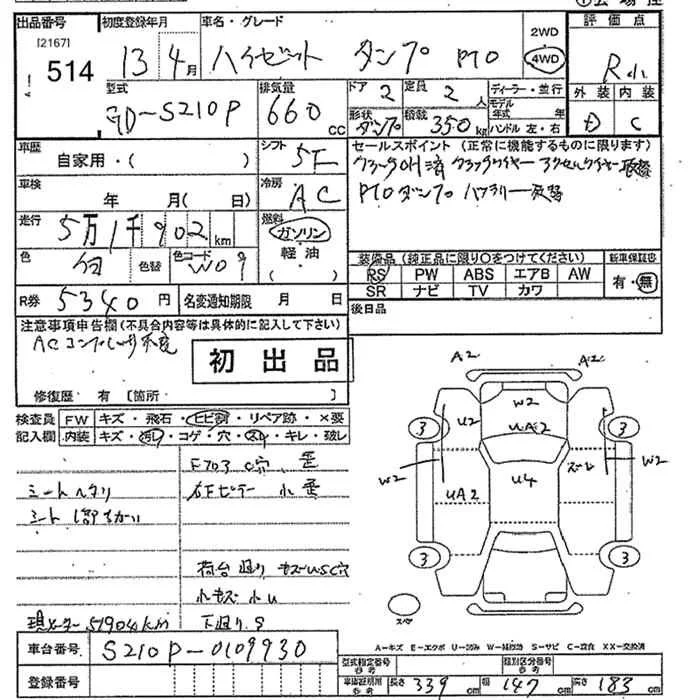 出品番号 初度登録年月 車名・グレード 評価点
[2167]
514 13年4月 ハイゼット ダンプ PTO 2WD 4WD R
型式 排気量 ドア 定員 ディーラー・並行 外装 内装
GD-S210P 660cc 2 2人 モデル年式 年式
形状 ダンプ 積載 350kg ハンドル 左・右 D C
車歴 自家用・( ) シフト 5F セールスポイント (正常に機能するものに限ります)
クラッチOH済 クラッチワイヤー アクセルワイヤー
車検 年 月( 日) 冷房 AC PTOダンプ バッテリー
走行 5万1千902km 燃料 ガソリン 軽油 ( )
色 白 色替 色コード W09
装備品 (純正品に限り○をつけてください) 新車保証書
RS PW ABS エアB AW 有・無
SR ナビ TV カワ
R券 5340円 名変通知期限 月 日 後日品
注意事項申告欄(不具合内容等は具体的に記入して下さい)
ACコンプレッサ不良
初出品
修復歴 有 [箇所 ]
検査員 FW キズ・飛石・ヒビ割・リペア跡・×要
記入欄 内装 キズ・汚レ・コゲ・穴・スレ・キレ・破レ
A2 A2
W2
U2 UA2
3 3
W2 W2
UA2 U4
3 3
スペア
シートヘタリ
シート
荷台
小キズ 小U
現メーター 51904km 下廻りS
A-キズ E-エクボ U-凹み W-補修跡 S-サビ C-腐食 XX-交換済
車台番号 S210P-0109930
登録番号
型式指定番号 参考 類別区分番号 参考
車庫証明用 参考 長さ 339cm 幅 147cm 高さ 183cm